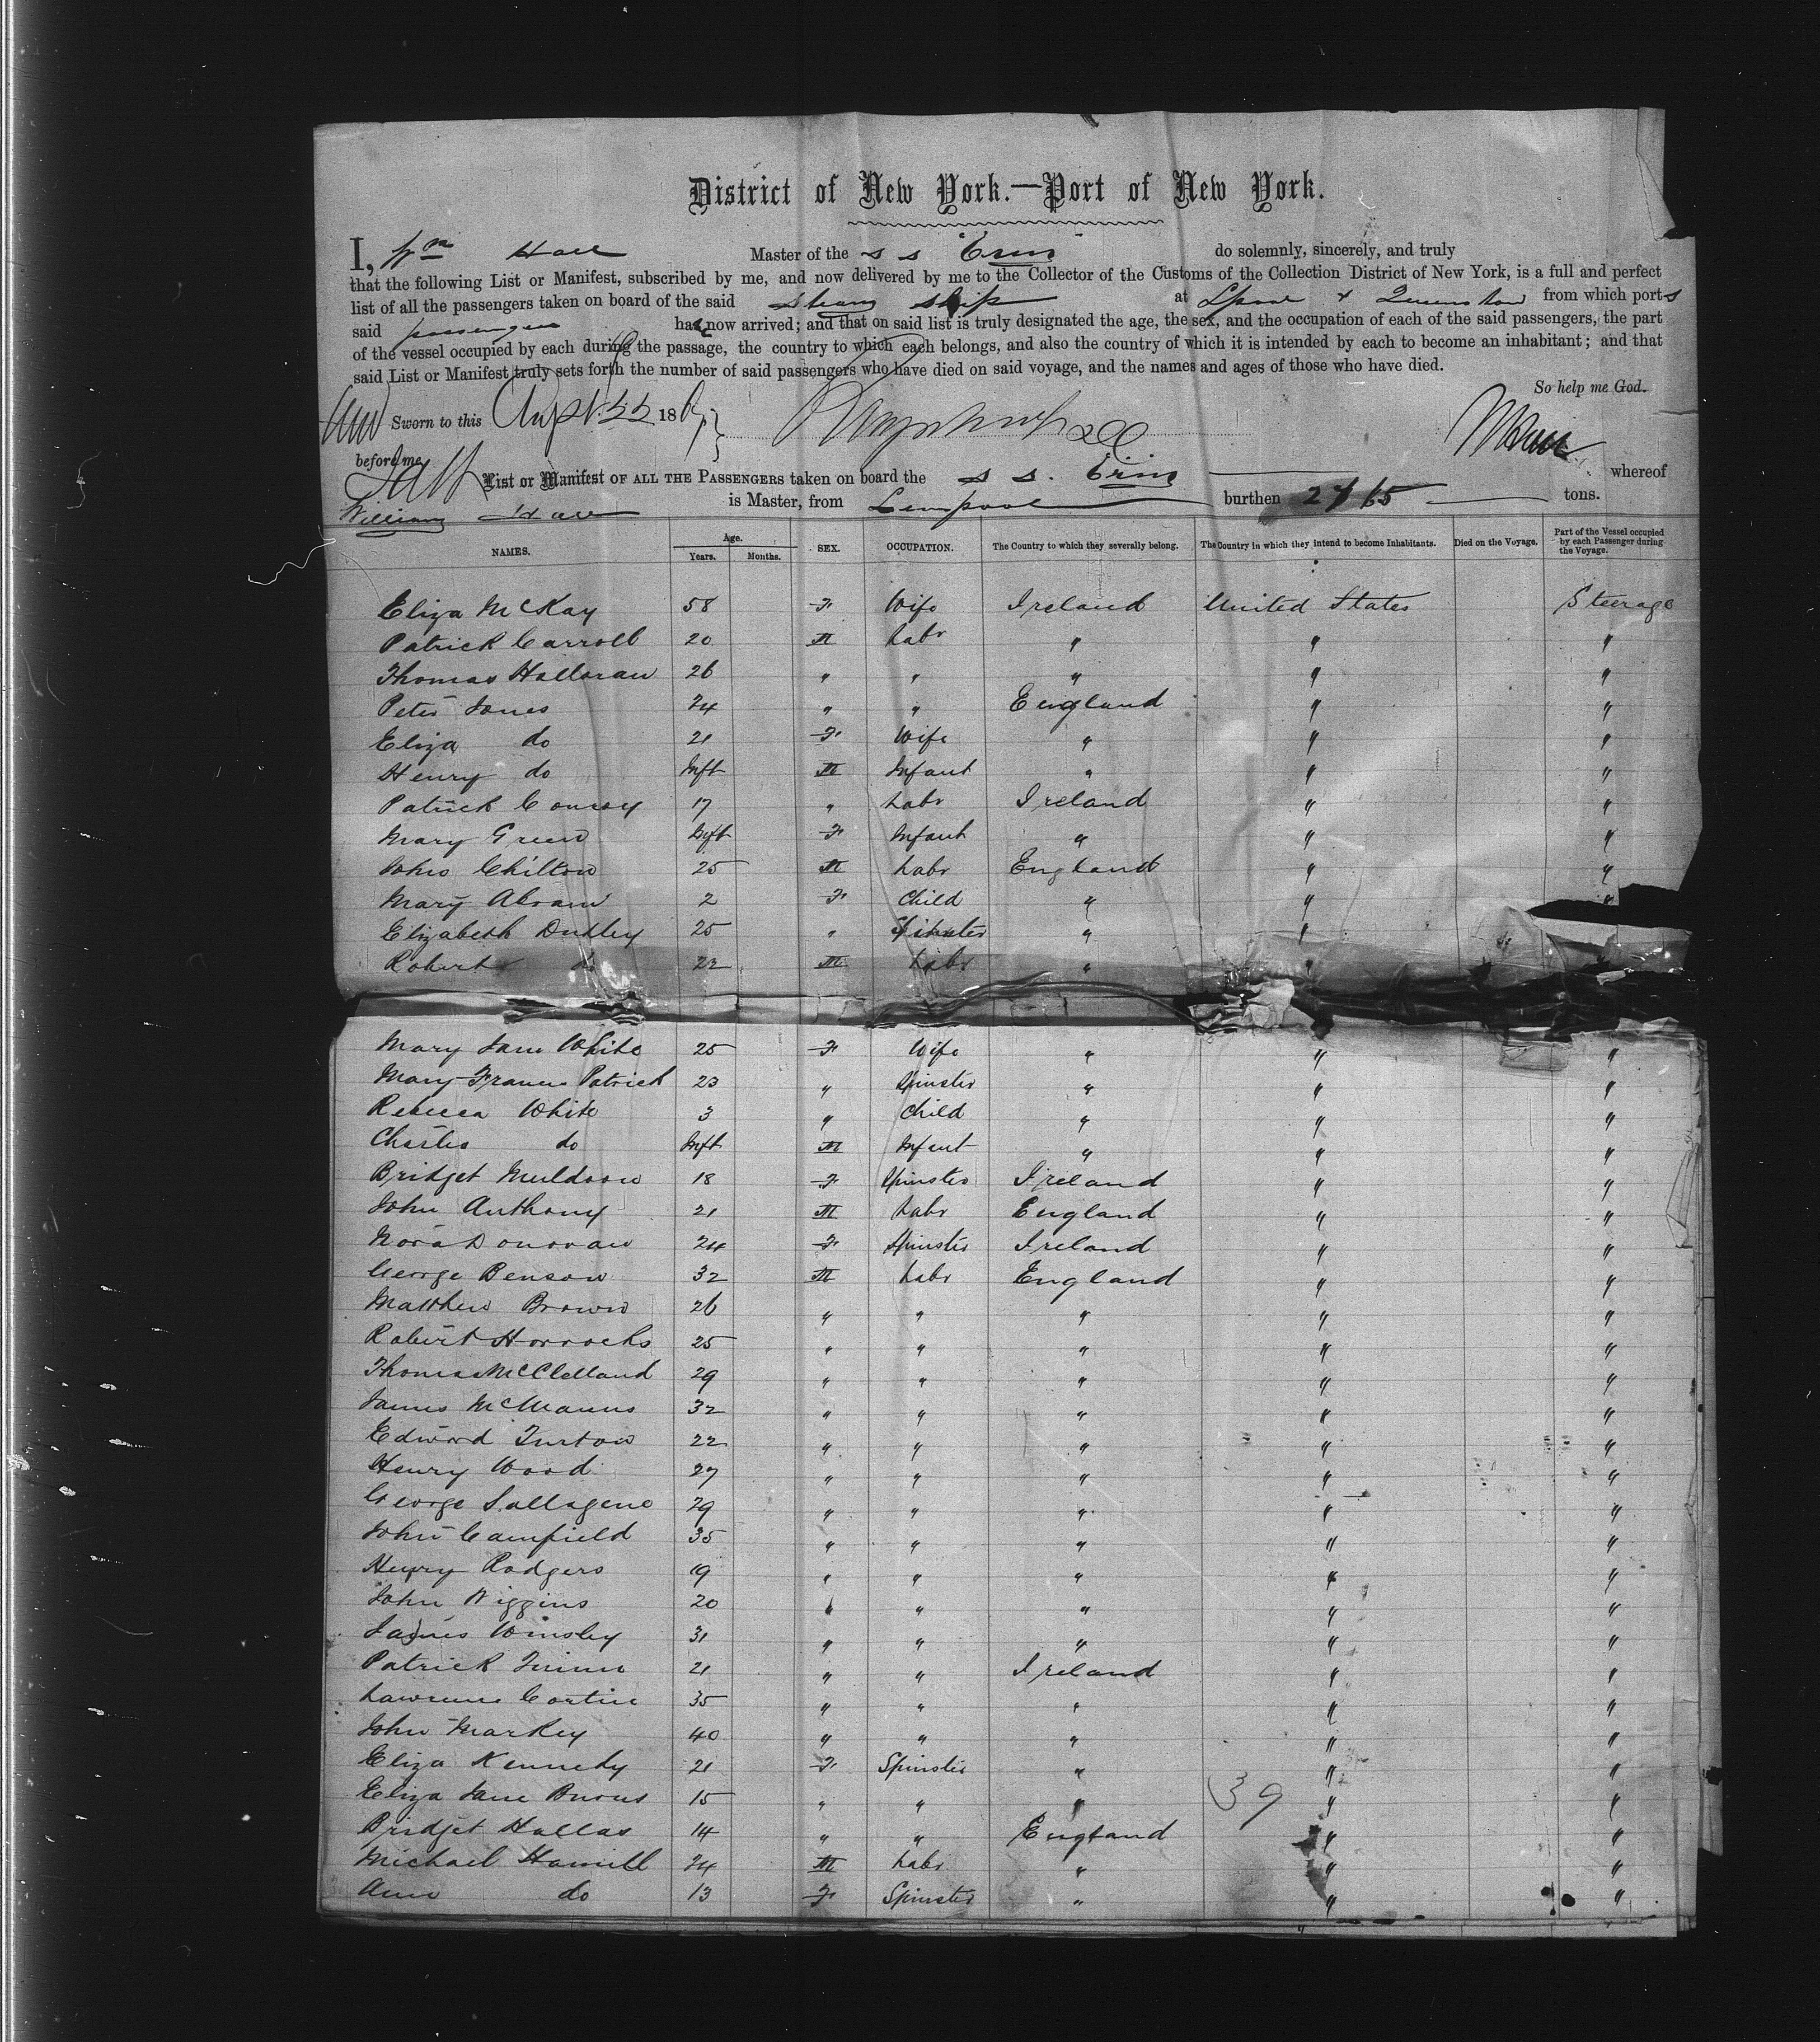 District of New York.—Port of New York.
I, Wm Hall Master of the S S "Erin" do solemnly, sincerely, and truly
that the following List or Manifest, subscribed by me, and now delivered by me to the Collector of the Customs of the Collection District of New York, is a full and perfect
list of all the passengers taken on board of the said Steam Ship at Lpool & Queenstown from which ports
said passengers has now arrived; and that on said list is truly designated the age, the sex, and the occupation of each of the said passengers, the part
of the vessel occupied by each during the passage, the country to which each belongs, and also the country of which it is intended by each to become an inhabitant; and that
said List or Manifest truly sets forth the number of said passengers who have died on said voyage, and the names and ages of those who have died.
So help me God.
Sworn to this Augst 22 186
before me
List or Manifest OF ALL THE PASSENGERS taken on board the S S. Erin whereof
William Hall is Master, from Liverpool burthen tons.
NAMES. Age. Years. Months. SEX. OCCUPATION. The Country to which they severally belong. The Country in which they intend to become Inhabitants. Died on the Voyage. Part of the Vessel occupied by each Passenger during the Voyage.
Eliza McKay 58 F Wife Ireland United States Steerage
Patrick Carroll 20 M Labr " " "
Thomas Halloran 26 " " " " "
Peter Jones 24 " " England " "
Eliza do 21 F Wife " " "
Henry do Inft M Infant " " "
Patrick Conroy 17 " Labr Ireland " "
Mary Green Inft F Infant " " "
John Chilton 25 M Labr England " "
Mary Abram 2 F Child " " "
Elizabeth Dudley 25 " Spinster " "
Robert do 22 M Labr " "
Mary Jane White 25 F Wife " " "
Mary Frances Patrick 23 " Spinster " " "
Rebecca White 3 " Child " " "
Charles do Inft M Infant " " "
Bridget Muldoon 18 F Spinster Ireland " "
John Anthony 21 M Labr England " "
Nora Donovan 24 F Spinster Ireland " "
George Benson 32 M Labr England " "
Matthew Brown 26 " " " " "
Robert Horrocks 25 " " " " "
Thomas McClelland 29 " " " " "
James McManus 32 " " " " "
Edward Turton 22 " " " " "
Henry Wood 27 " " " " "
George 29 " " " " "
John Camfield 35 " " " " "
Henry Rodgers 19 " " " " "
John Wiggins 20 " " " " "
James Winsley 31 " " " " "
Patrick Quinn 21 " " Ireland " "
Lawrence 35 " " " " "
John Markey 40 " " " " "
Eliza Kennedy 21 F Spinster " " "
Eliza Jane Burns 15 " " " 39 " "
Bridget Hallas 14 " " England " "
Michael Hamill 24 M Labr " " "
Ann do 13 F Spinster " " "